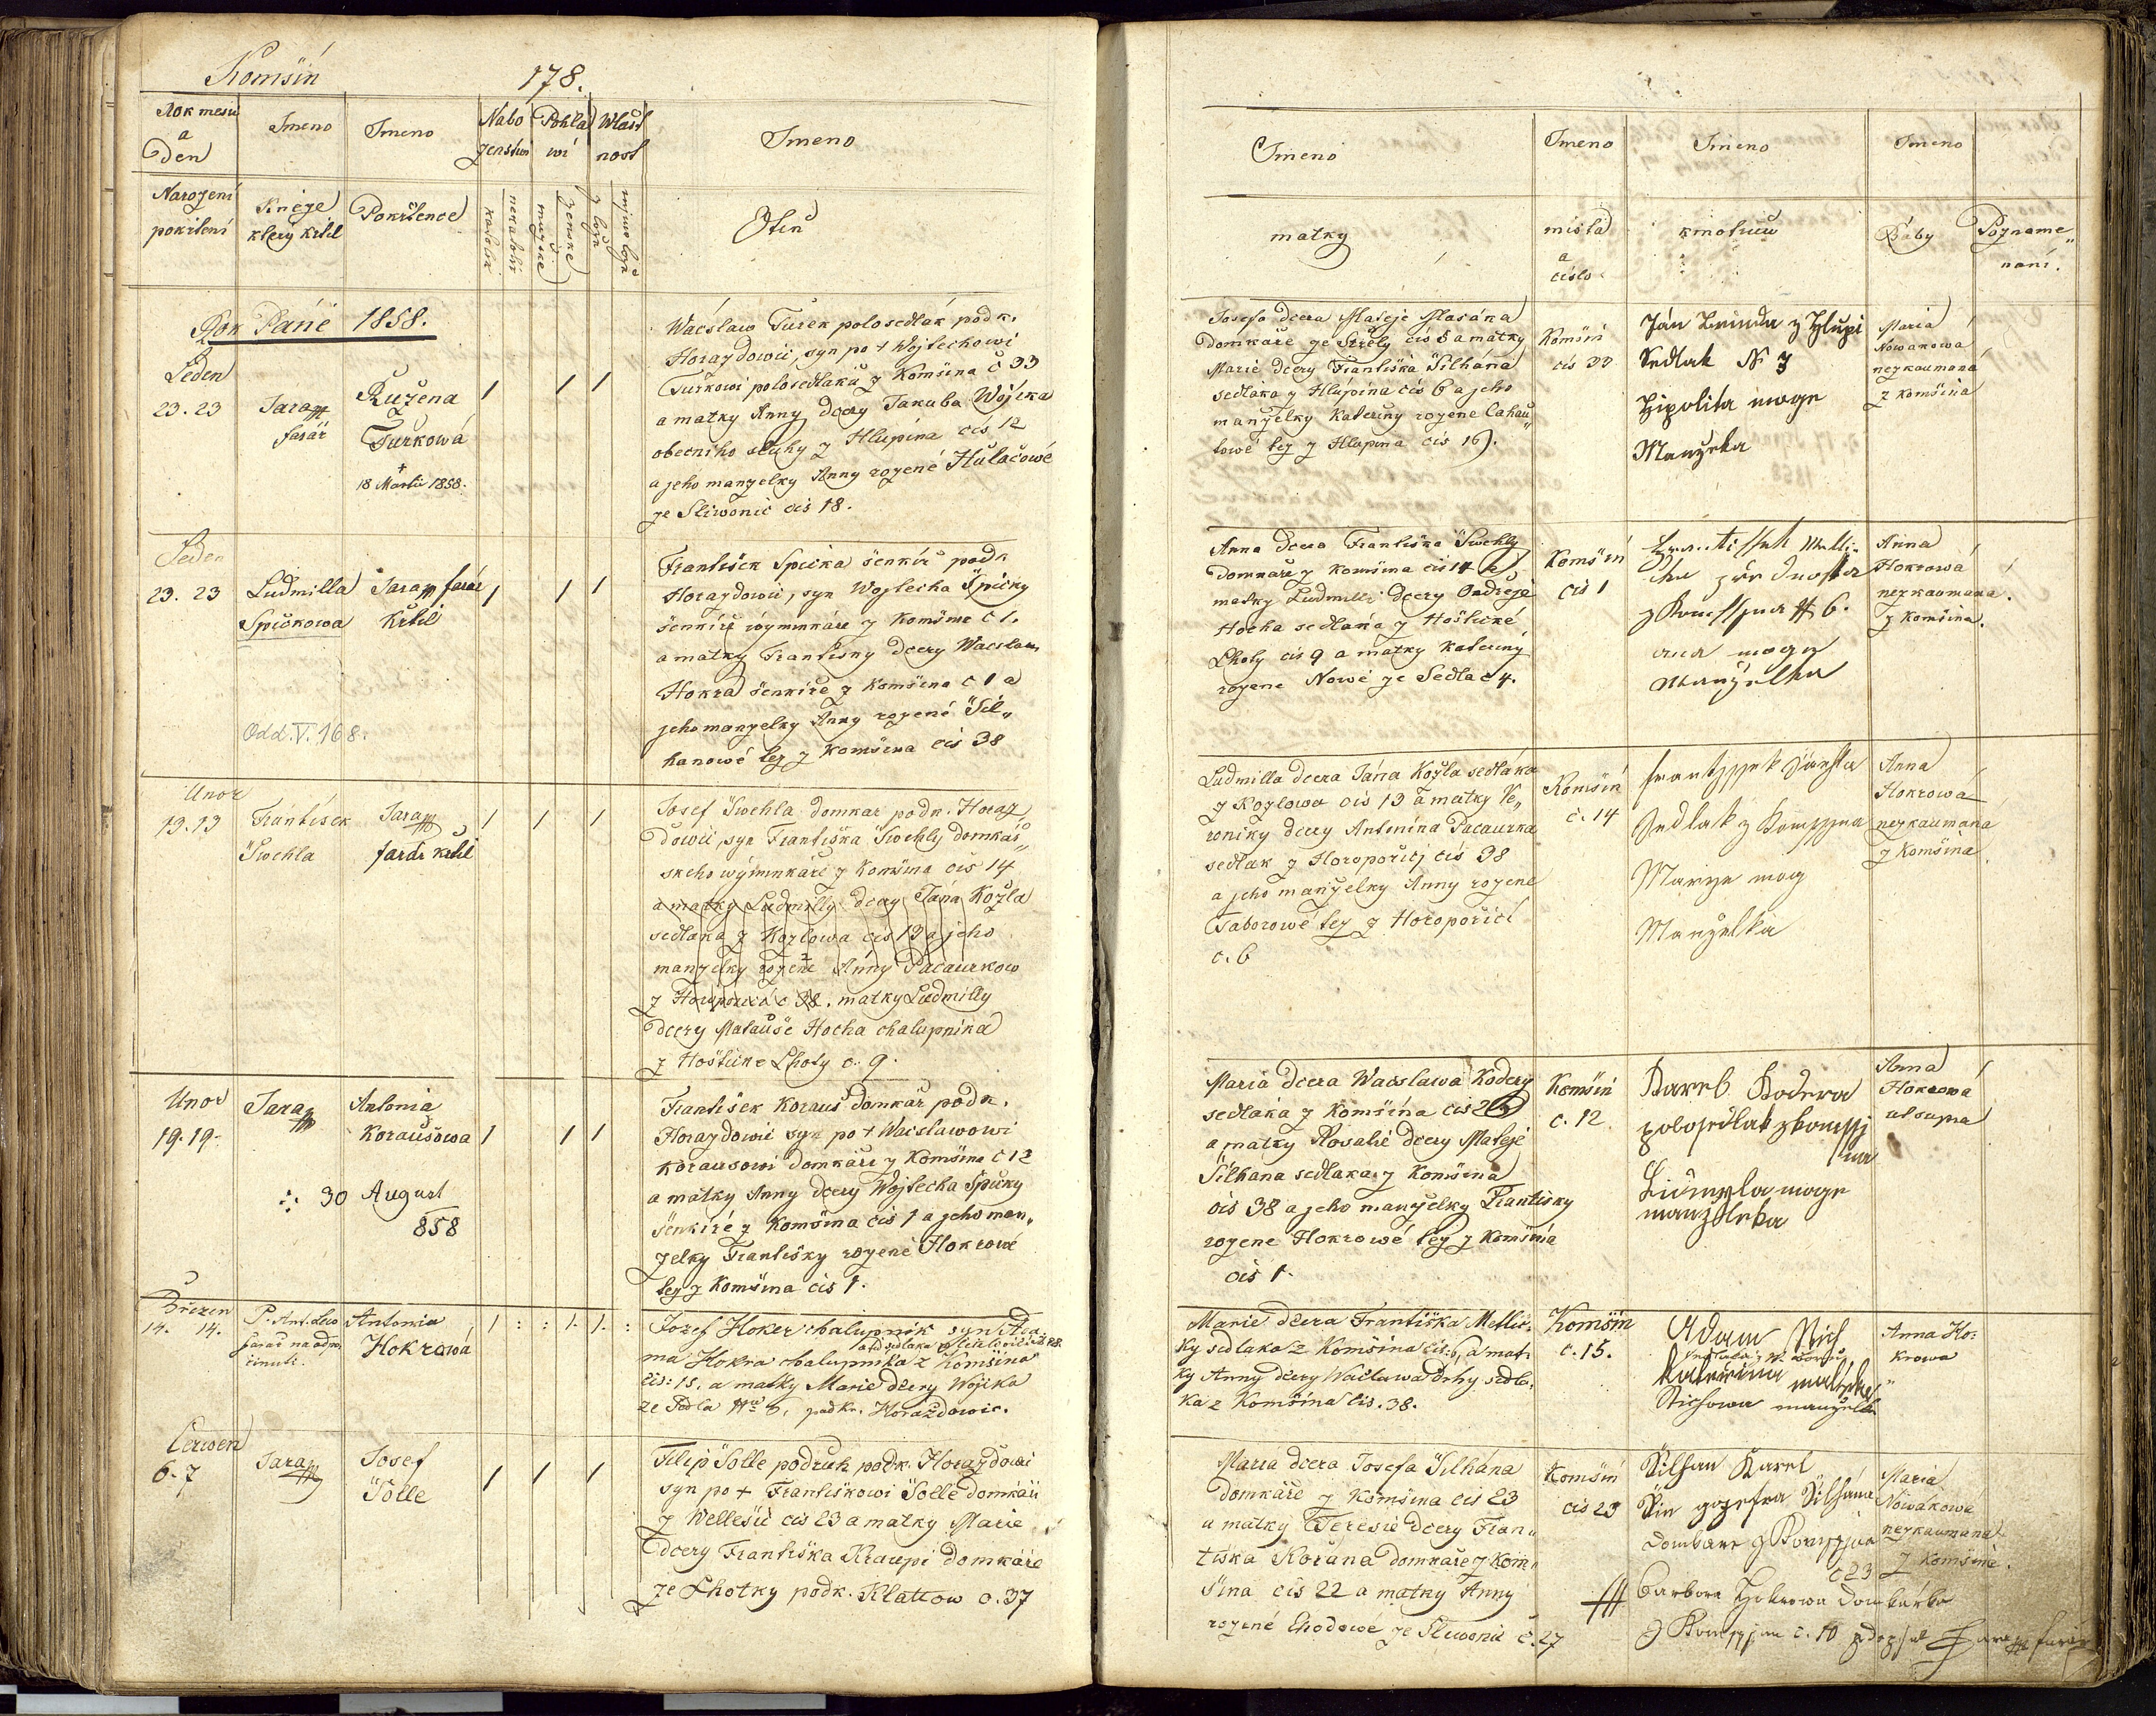 Komšin
178.
Rok mesic
a
Den
Jmeno
Jmeno
Nabo
ženstwi
Pohla
wi
Wlast
nost
Jmeno
Narozeni
pokřteni
Kneze
ktery křtil
Pokřtence
katolik
nekatolik
mužske
ženske
z lože
mimo lože
Otců
Rok Páně 1858.
Leden
23. 23
Jara
farář
Růžena
Turkowá
+
18 Martii 1858.
1 1 1
Wacslaw Turek polosedlák podk.
Horazdowic, syn po + Wojtechowi
Turkowi polosedlaků z Komšina č 33
a matky Anny dcery Jakuba Wojika
obecniho sluhy z Hlupina cis 12
a jeho manzelky Anny rozené Hulačowé
ze Sliwonic cis 18.
Leden
23. 23
Ludmilla
Spičkowa
Jara farář
Křtil
1 1 1
František Spička šenkiř podk
Horazdowic, syn Wojtecha Spičky
šenkiře wýminkáře z Komšina č 1.
a matky Frantisky dcery Wacslawa
Hokra šenkiře z Komšina č 1 a
jeho manzelky Anny rozené Šil„
hanowé tez z Komšina cis 38
Odd. V. 168.
Unor
13. 13
František
Šwehla
Jara
farář křtil
1 1 1
Josef Šwehla domkar podk. Horaz„
dowic, syn Františka Šwehly domkář„
skeho wýminkáře z Komšina cis 14
a matky Ludmilly dcery Jána Kozla
sedlaka z Kozlowa cis 13 a jeho
manzelky rozene Anny Pacaurkow
z Horoporici c 38. matky Ludmilly
dcery Matauše Hocha chalupnika
z Hoštické Lhoty c. 9.
Unor
19. 19.
Jara
Antonia
Koraušowa
1 1 1
30 August
858
František Korauš domkař podk.
Horazdowic syn po + Wacslawowi
Korausowi domkáři z Komšina č 12
a matky Anny dcery Wojtecha Spičky
šenkiře z Komšina cis 1 a jeho man„
zelky Františky rozené Hokrowé
tez z Komšina cis 1.
Březen
14. 14.
P. Ant.
farář na odpo,
činuti.
Antonia
Hokrowá
1 : : 1. 1. :
Jozef Hoker chalupnik syn Ada,
ma Hokra chalupnika z Komšina
čis: 15. a matky Marie dcery Wojika
podkr. Horaždowic.
Cerwen
6. 7
Jara
Josef
Šolle
1 1 1
Filip Šolle podruh podk. Horazdowi
syn po + Františkowi Šolle domkáři
z Wellešic cis 23 a matky Marie
dcery Františka Kraupi domkáře
ze Lhotky podk. Klattow c. 37
Jmeno
Jmeno
Jmeno
Jmeno
matky
mista
a
cislo
kmotruw
Baby
Pozname„
nani.
Josefa dcera Mateje Masáka
domkáře ze Střely cis 5 a matky
Marie dcery Františka Šilhána
sedlaka z Hlupina cis 6 a jeho
manzelky Kateriny rozene Cahau„
towé tez z Hlupina cis 16.
Komšin
cis 33
Ján z Hlupi
Sedlak N 3
Hipolita moge
Manzelka
Maria
Nowakowa
nezkaumaná
z Komšina
Anna dcera Františka Šwehly
domkáře z Komšina cis 14 a
matky Ludmilli dcery Ondřeje
Hocha sedlaka z Hoštické
Lhoty cis 9 a matky Kateriny
rozene Nowé ze Sedla č 4.
Komšin
cis 1
6.
moge
manželka
Anna
Hokrowá
nezkaumana
z Komšina.
Ludmilla dcera Jána Kozla sedláka
z Kozlowa cis 13 a matky We„
roniky dcery Antonina Pacaurka
sedlak z Horoporicj cis 38
a jeho manželky Anny rozene
Taborowé tez z Horoporici
c. 6
Komšin
č. 14
Sedlak z Komssina
Marye mog
Manzelka
Anna
Hokrowá
nezkaumána
z Komšina
Maria dcera Wacslawa Kodery
sedlaka z Komšina cis
a matky Rosalie dcery Mateje
Šilhana sedlaka z Komšina
cis 38 a jeho manzelky Františky
rozene Hokrowé tez z Komšina
cis 1.
Komšin
č. 12
Karel Kodera
polosedlak z komssj
na
Lidmyla moge
manzelka
Anna
Hokrowa
ut supra
Marie dcera Františka Metlic.
ky sedlaka z Komšina čis: 6, a mat.
ky Anny dcery Waclawa Drhy sedla.
ka z Komšina čis. 38.
Komšin
č. 15.
Adam
Katerina
manželka
Anna Ho:
krowa
Maria dcera Josefa Šilhána
domkáře z Komšina cis 23
a matky Teresie dcery Fran„
tiska Kořána domkáře z Kom„
šina cis 22 a matky Anny
rozené Chodowé ze Sliwonic č. 27
Komšin
cis 23
Šilhan Karel
Sin gozefa Šilhána
Domkare z Komssina
č 23
Barbora Hokrowa Domkárka
z Komssina č. 10 farář
Maria
Nowákowá
nezkaumaná
z Komšina.